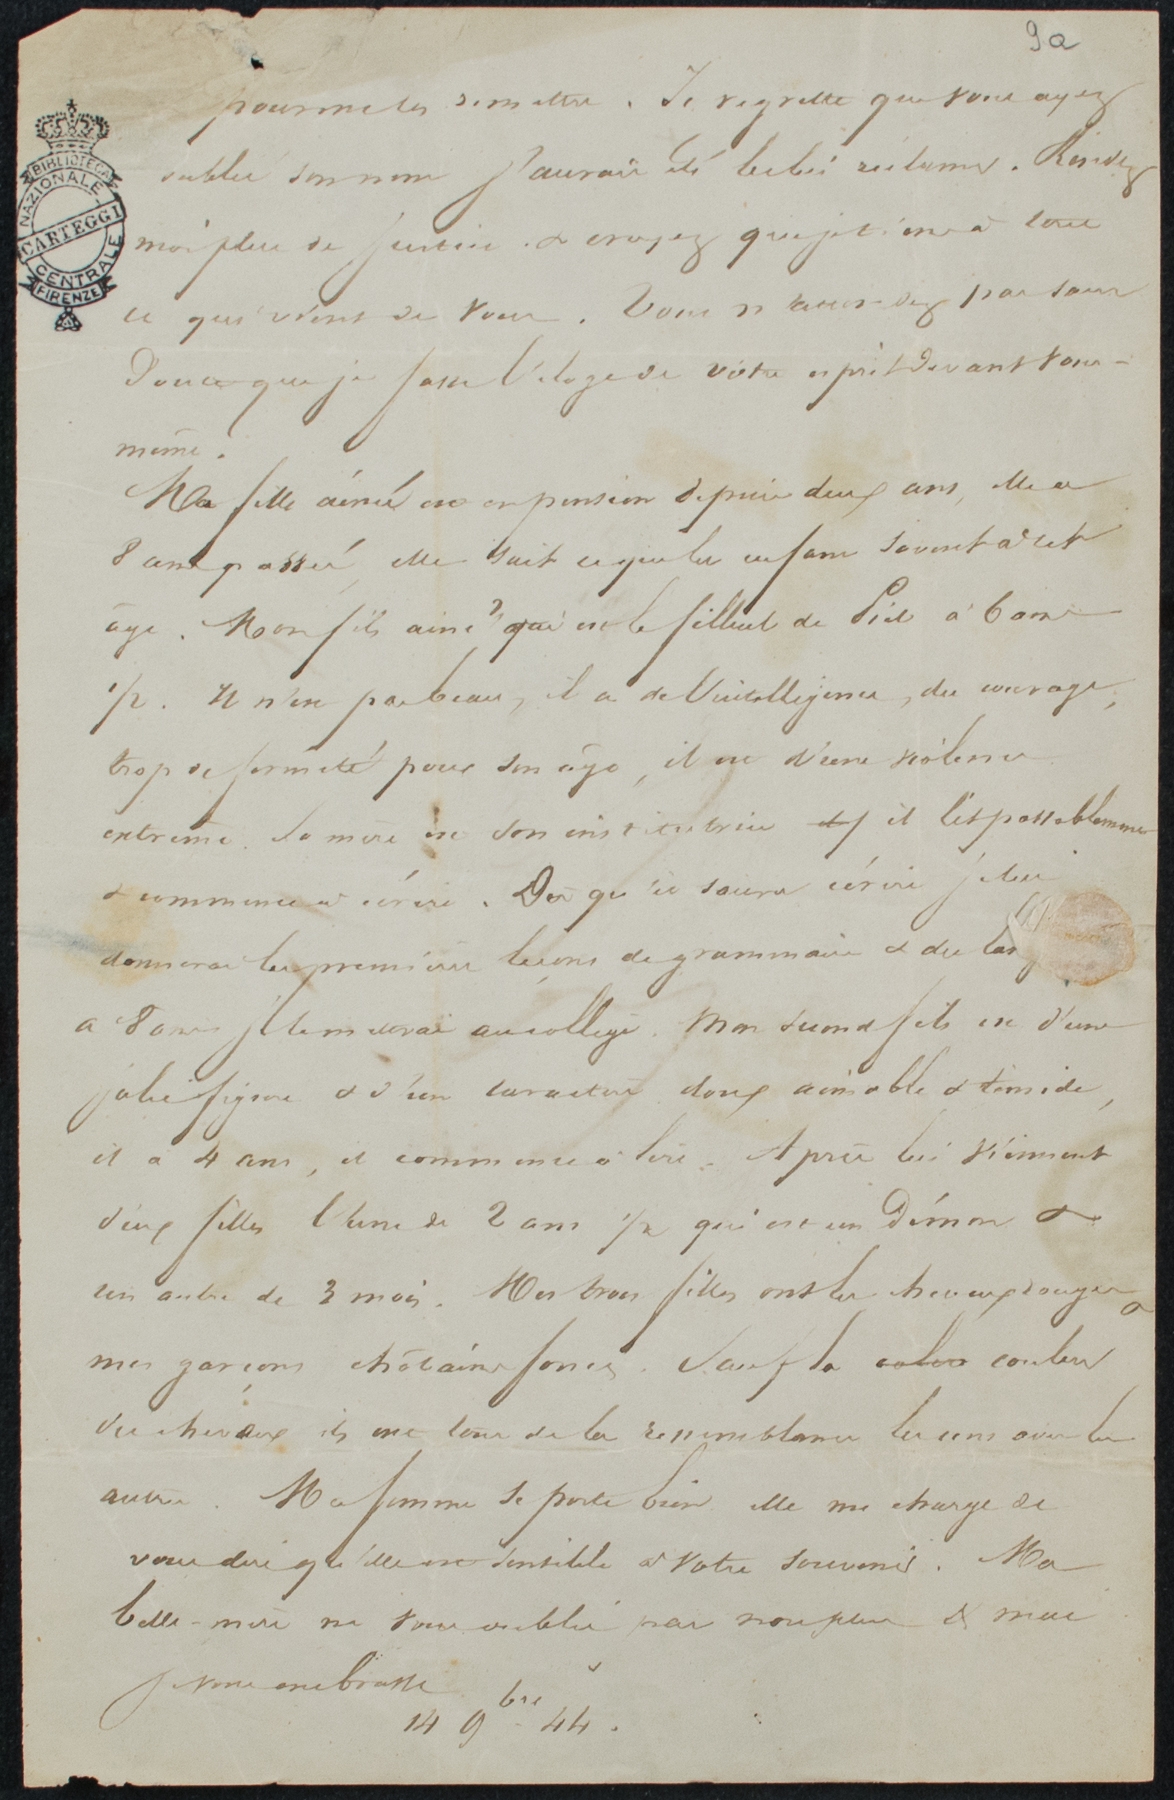 9a
pour me les remettre. Je regrette que vous ayez
oublié son nom j'aurais été les lui réclamer. Rendez
moi plus de justice. & croyez que je tiens à tout
ce qui vient de vous. Vous n'attendez pas sans
Doute que je fasse l'éloge de votre esprit devant vous-
même.
BIBLIOTECA
NAZIONALE
CARTEGGI
CENTRALE
FIRENZE
Ma fille ainée est en pension depuis deux ans, elle a
8 ans passés, elle sait ce que les enfans savent à cet
âge. Mon fils ainé qui est le filleul de a 6 ans
1/2. Il n'est pas beau, il a de l'intelligence, du courage,
trop de fermeté pour son âge, il est d'une violence
extrême. Sa mère est son institutrice il lit passablement
& commence à écrire. Dès qu'il saura écrire je lui
donnerai les premières leçons de grammaire & de
a 8 ans je le mettrai au collège. Mon second fils est d'une
jolie figure & d'un caractère doux aimable & timide,
il a 4 ans, il commence à lire. Après lui viennent
deux filles l'une de 2 ans 1/2 qui est un Démon &
un autre de 3 mois. Mes trois filles ont les cheveux rouges &
mes garçons châtains foncés. Sauf la couleur
des cheveux ils ont tous de la ressemblance les uns avec les
autres. Ma femme se porte bien elle me charge de
vous dire qu'elle est sensible à votre souvenir. Ma
belle-mère ne vous oublie pas non plus & moi
je vous embrasse
14 9bre 44.